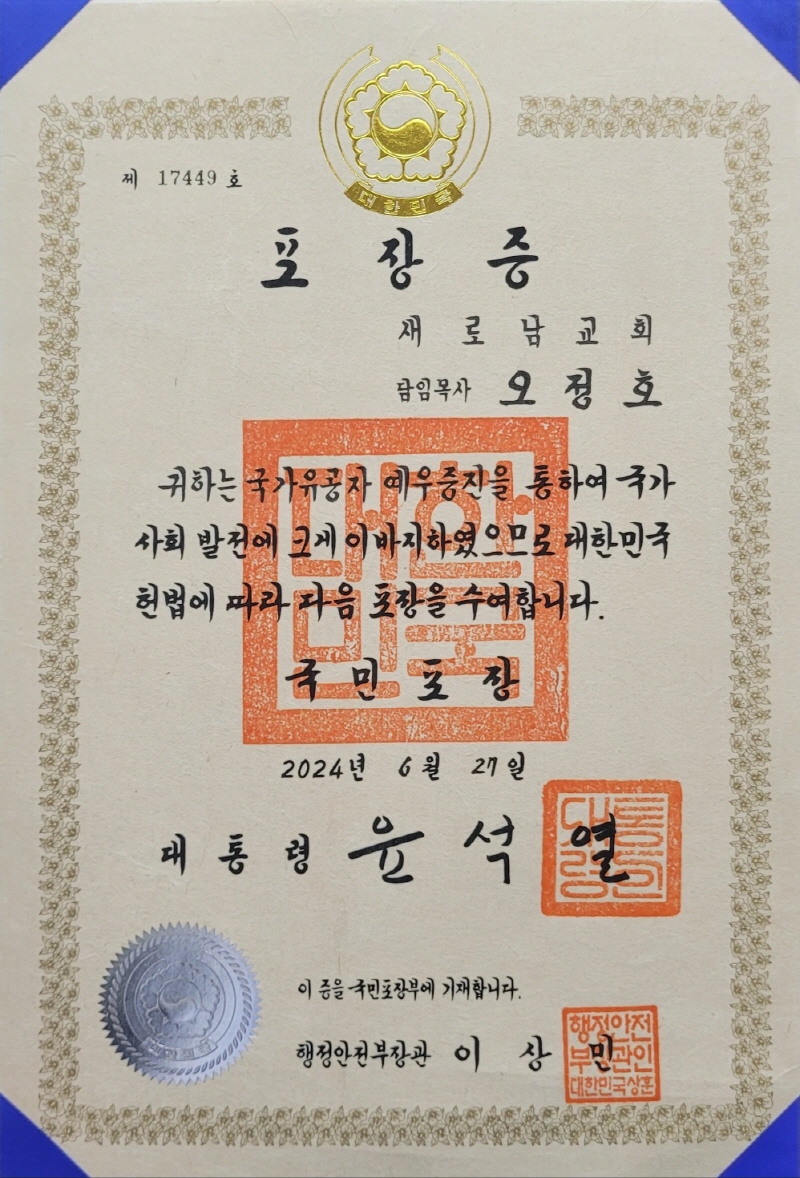 대한민국
제 17449 호
포장증
새로남교회
담임목사 오정호
귀하는 국가유공자 예우증진을 통하여 국가
사회 발전에 크게 이바지하였으므로 대한민국
헌법에 따라 다음 포장을 수여합니다.
대한
민국
국민포장
2024년 6월 27일
대통령 윤석열
이 증을 국민포장부에 기재합니다.
행정안전부장관 이상민
행정안전
부장관인
대한민국상훈